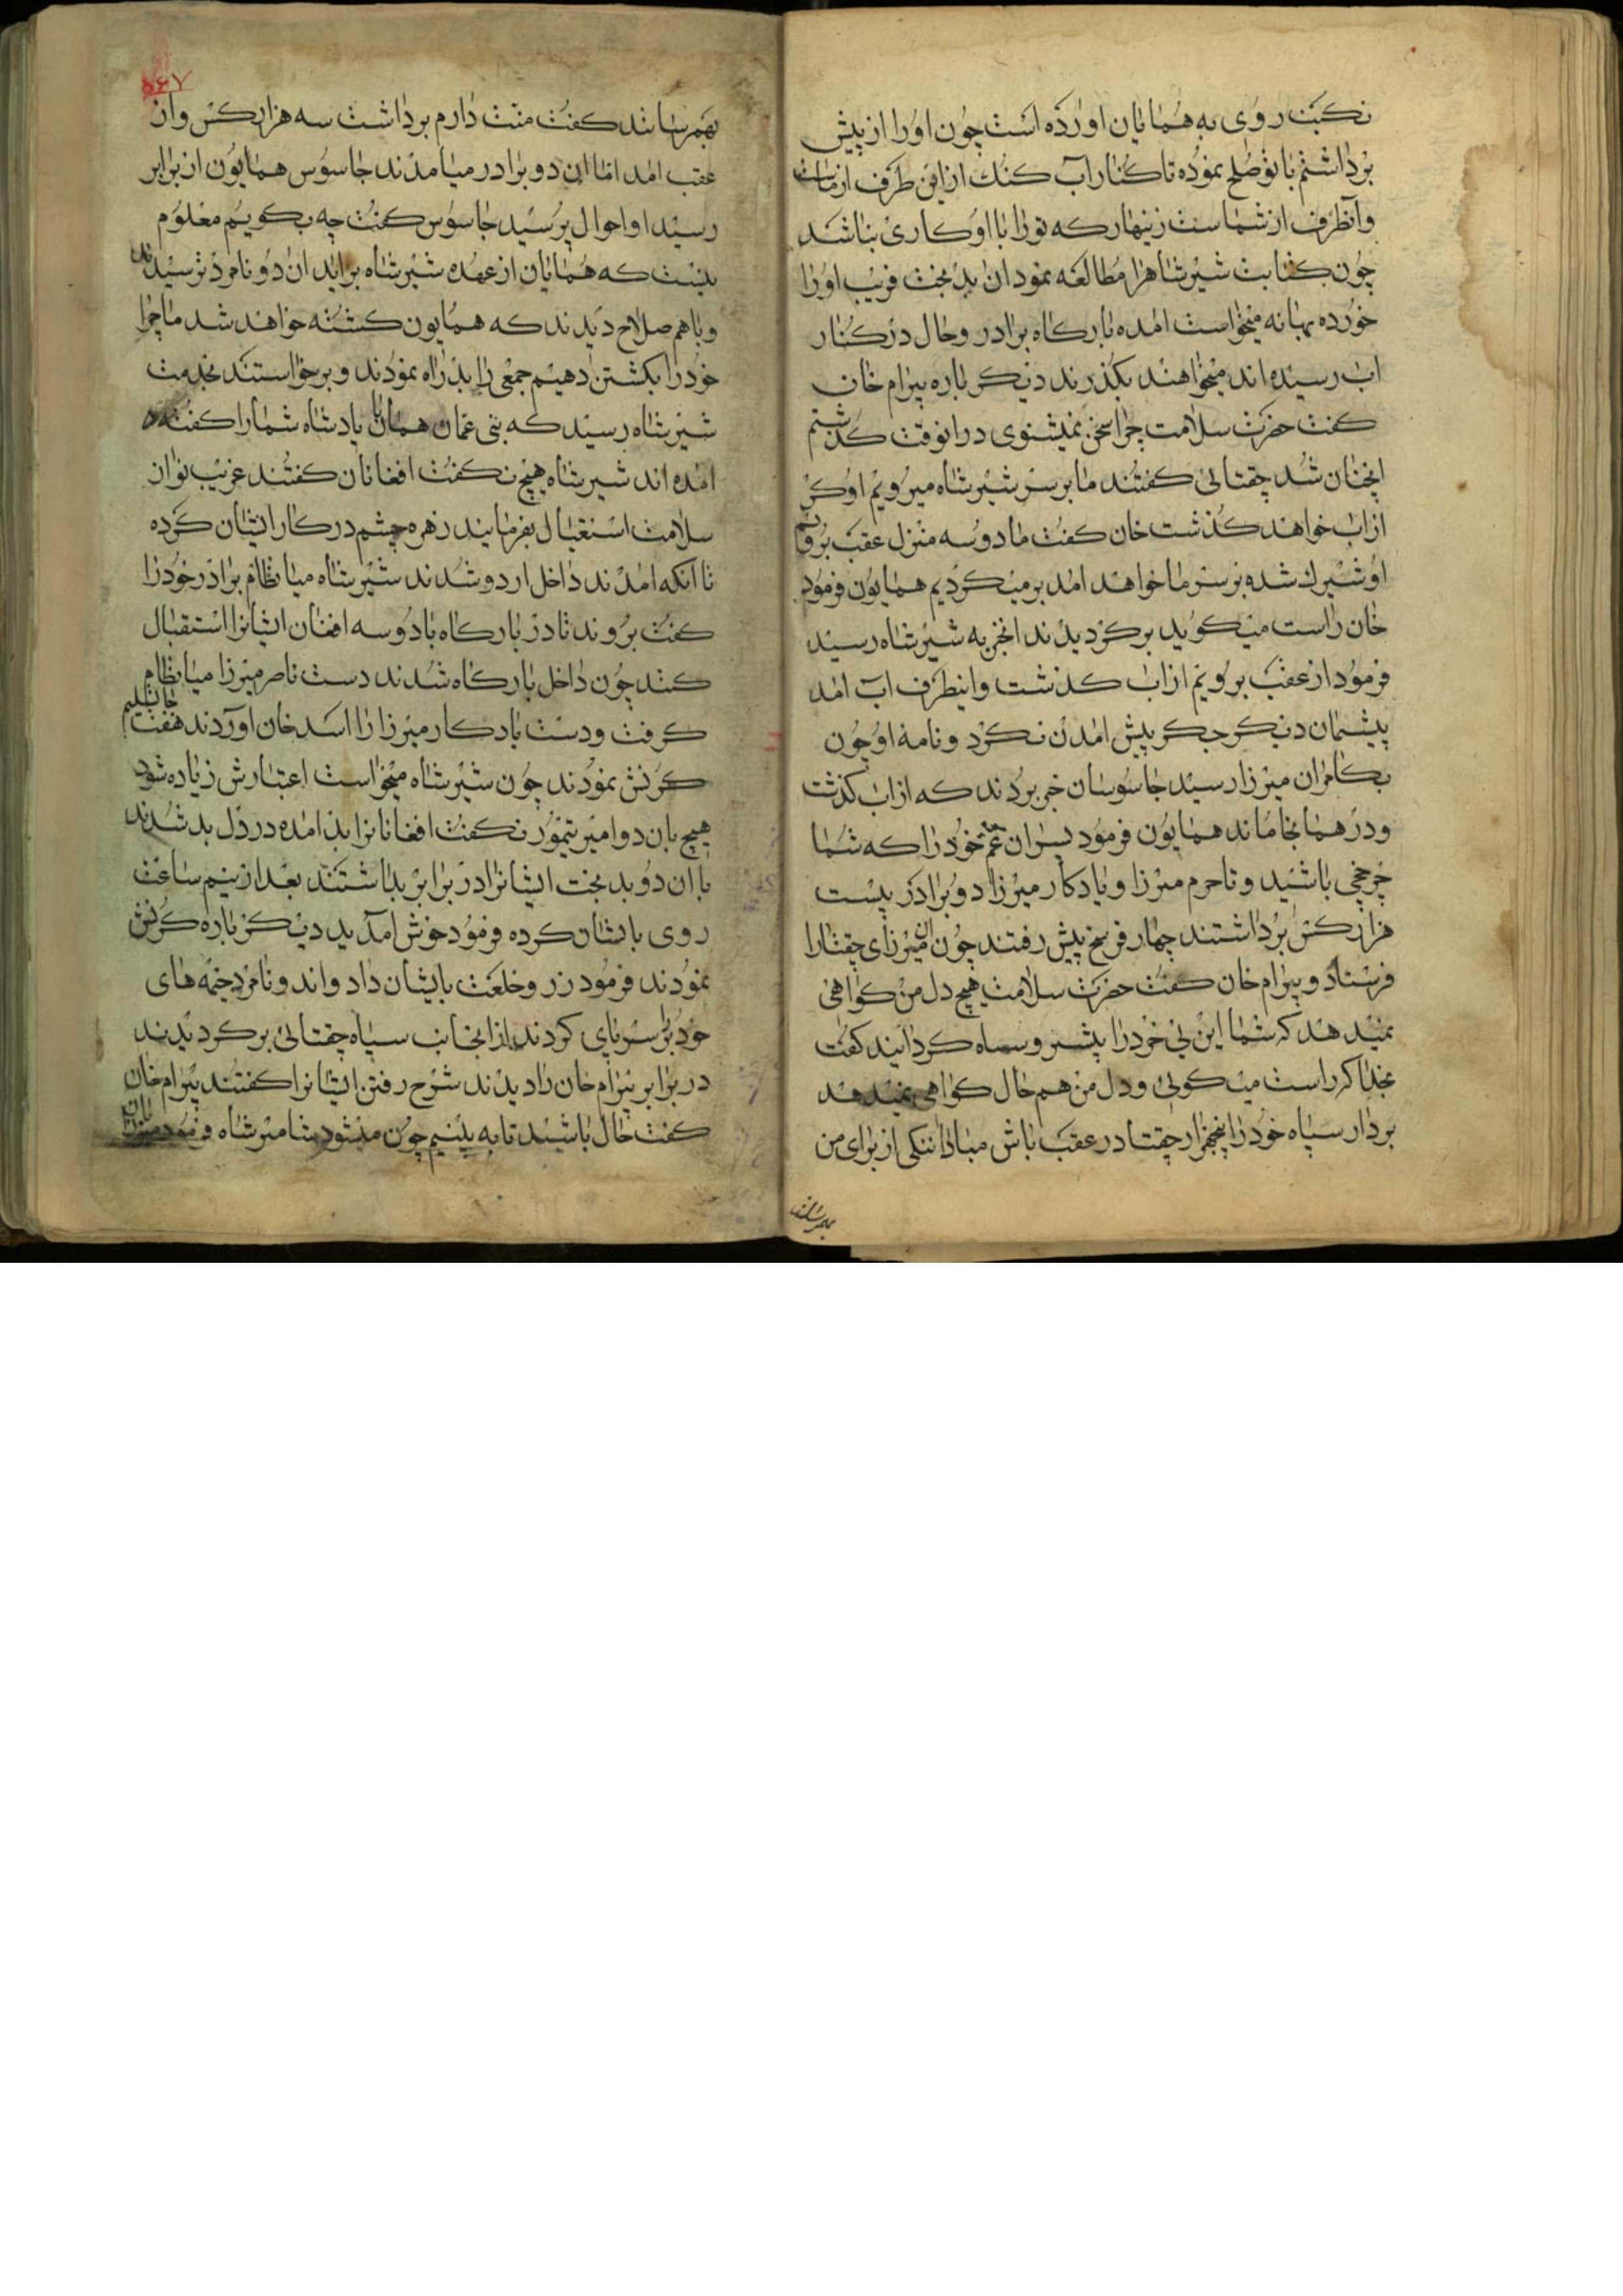 نکبت روی به همایان اورده است چون اورا از پیش
برداشتم با تو صلح نموده تا کنار آب کنک ازین طرف از ماست
وآنطرف از شماست زینهار که تورا با او کاری نباشد
چون کتابت شیر شاه را مطالعه نمود ان بدبخت فریب اورا
خورده بهانه میخواست امده بارکاه برادر و حال در کنار
اب رسیده اند میخواهند بکذرند دیکر باره بیرام خان
کفت حضرت سلامت چرا سخن نمیشنوی درانوقت کذشتیم
انچنان شد چقتائی کفتند ما بر سر شیر شاه میرویم او کی
از اب خواهد کذشت خان کفت ما دو سه منزل عقب برویم
او شیرک شده بر سر ما خواهد امد برمیکردیم همایون فرمود
خان راست میکوید برکردیدند انخبر به شیر شاه رسید
فرمود از عقب برویم از اب کذشت واینطرف اب امد
پیشمان دیکر جکر پیش امدن نکرد و نامه او چون
بکامران میرزا رسید جاسوسان خبر بردند که از اب کذشت
ودر همانجا ماند همایون فرمود پسران عم خودرا که شما
چرخچی باشید وناصر میرزا ویادکار میرزا دو برادر بیست
هزار کس برداشتند چهار فرسخ پیش رفتند چون ان میرزای چقتارا
فرستاد و بیرام خان کفت حضرت سلامت هیچ دل من کواهی
نمیدهد که شما این بی خردرا پیشرو سپاه کردانید کفت
بخدا که راست میکوئی ودل من هم حال کواهی نمیدهد
بردار سپاه خودرا پنجهزار چقتا در عقب باش مبادا ننکی از برای من
بهمرسانند
۵۶۷
بهم رسانند کفت منت دارم برداشت سه هزار کس واز
عقب امد اما این دو برادر میامدند جاسوس همایون از برابر
رسید او احوال پرسید جاسوس کفت چه بکویم معلوم
نیست که همایان از عهده شیر شاه براید ان دو نامرد ترسیدند
وباهم صلاح دیدند که همایون کشته خواهد شد ما چرا
خودرا بکشتن دهیم جمعی را بدراه نمودند و برخواستند بخدمت
شیر شاه رسید که بنی عمان همایان پادشاه شمارا کفته
امده اند شیر شاه هیچ نکفت افغانان کفتند غریب نواز
سلامت استقبال بفرمایند زهره چشم در کار ایشان کرده
تا انکه امدند داخل اردو شدند شیر شاه میا نظام برادر خودرا
کفت بروند تا در بارکاه با دو سه افغان ایشانرا استقبال
کنند چون داخل بارکاه شدند دست ناصر میرزا میا نظام
کرفت ودست یادکار میرزا را اسد خان اوردند هفت جا تسلیم
کرنش نمودند چون شیر شاه میخواست اعتبارش زیاده شود
هیچ بان دو امیر تیمور نکفت افغانانرا بد امده در دل بد شدند
با ان دو بدبخت ایشانرا در برابر بداشتند بعد از نیم ساعت
روی بایشان کرده فرمود خوش امدید دیکر باره کرنش
نمودند فرمود زر وخلعت بایشان داد واند ونامرد خیمه های
خودرا برسرپای کردند ازانجانب سپاه چقتائی برکردیدند
در برابر بیرام خان را دیدند شرح رفتن ایشانرا کفتند بیرام خان
کفت حال باشید تا به بینیم چون میشود شامیر شاه فرمود